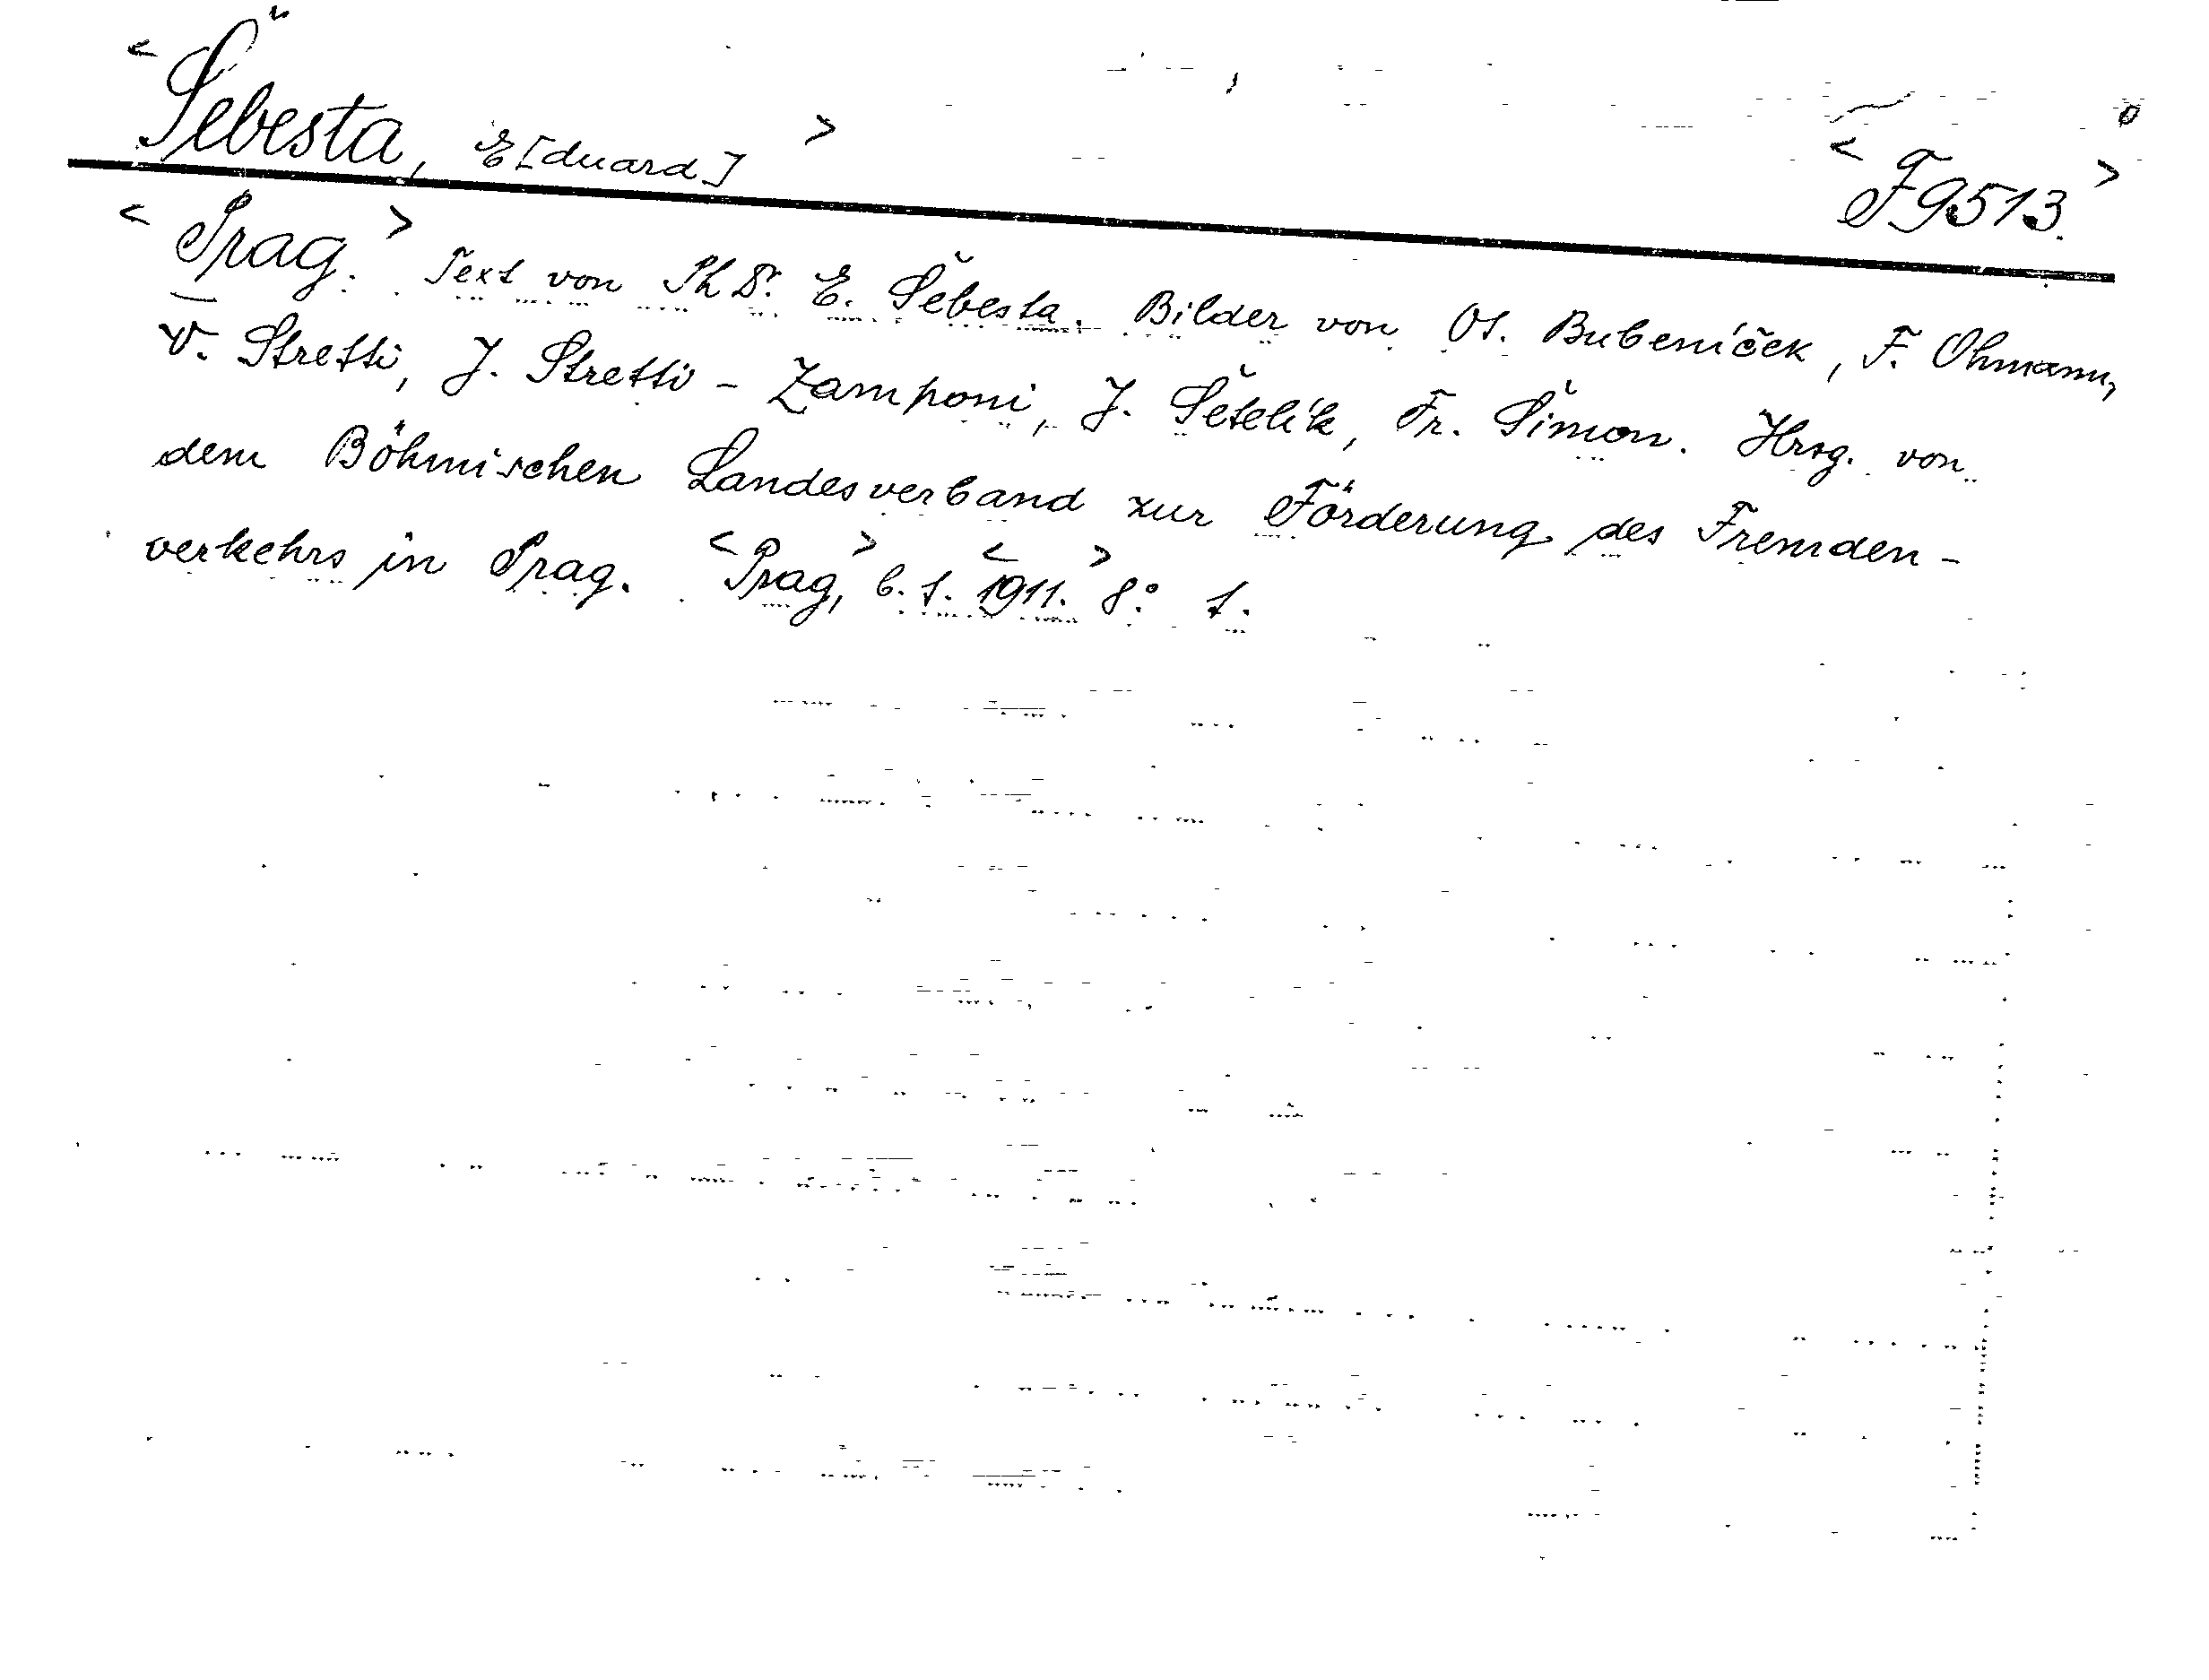 <Šebesta, E[duard]>
<F 9513.>
<Prag.> Text von PhDr. E. Šebesta. Bilder von Ot. Bubeníček, F. Ohmann,
V. Stretti, J. Stretti-Zamponi, J. Šetelík, Fr. Šimon. Hrsg. von
dem Böhmischen Landesverband zur Förderung des Fremden-
verkehrs in Prag. <Prag,> b. t. <1911.> 8° t.